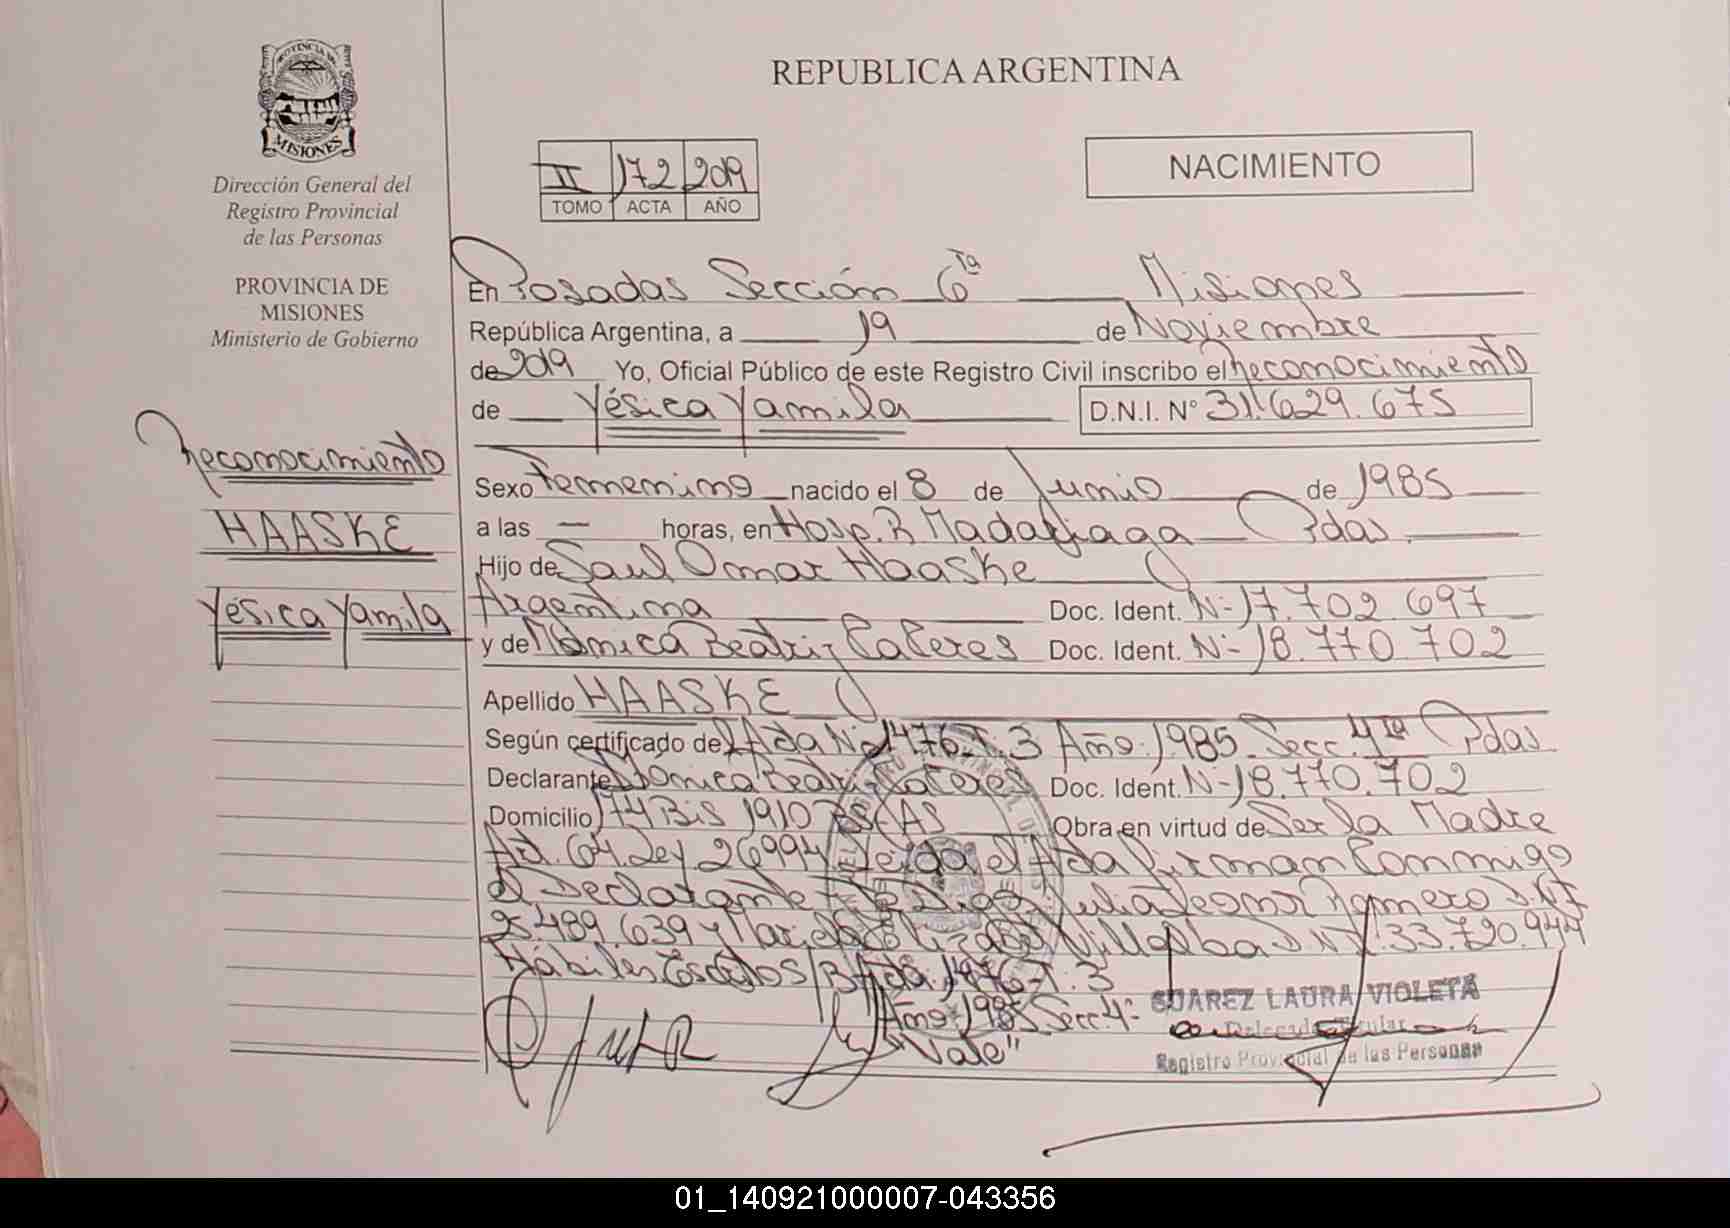 REPUBLICA ARGENTINA
PROVINCIA DE
MISIONES
Dirección General del
Registro Provincial
de las Personas
PROVINCIA DE
MISIONES
Ministerio de Gobierno
II 172 2019
TOMO ACTA AÑO
NACIMIENTO
Reconocimiento
HAASKE
Yésica Yamila
En Posadas Sección 6ta Misiones
República Argentina, a 19 de Noviembre
de 2019 Yo, Oficial Público de este Registro Civil inscribo el reconocimiento
de Yésica Yamila D.N.I. N° 31.629.675
Sexo Femenino nacido el 8 de Junio de 1985
a las — horas, en Hosp. R Madariaga Pdas.
Hijo de Saul Omar Haaske
Argentina Doc. Ident. N- 17.702.697
y de Mónica Beatriz Caceres Doc. Ident. N- 18.770.702
Apellido HAASKE
Según certificado de Acta N- T. 3 Año 1985 Secc. 4ta Pdas
Declarante Mónica Beatriz Caceres Doc. Ident. N- 18.770.702
Domicilio 174 Bis 1910 Obra en virtud de Ser la Madre
Art. 64 Ley 26994 Leida el Acta firman Conmigo
el Declarante Romero D.N.I
25.489.639 y Villalba D.N.I. 33.720.944
Hábiles T. 3
Año 1985 Secc. 4-
"Vale"
SUAREZ LAURA VIOLETA
Delegada Titular
Registro Provincial de las Personas
01_140921000007-043356